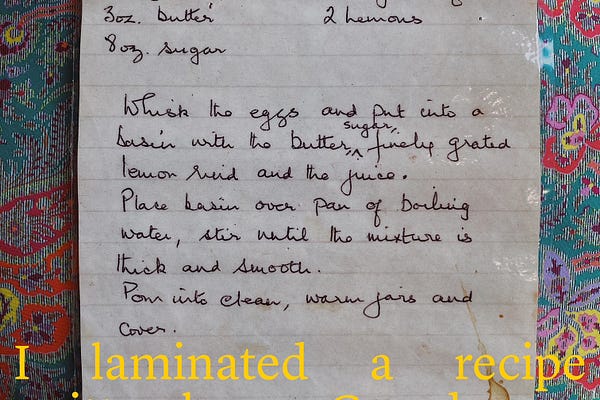 3oz. butter 2 Lemons
8oz. sugar
Whisk the eggs and put into a
basin with the butter, sugar, finely grated
lemon rind and the juice.
Place basin over pan of boiling
water, stir until the mixture is
thick and smooth.
Pour into clean, warm jars and
cover.
I laminated a recipe